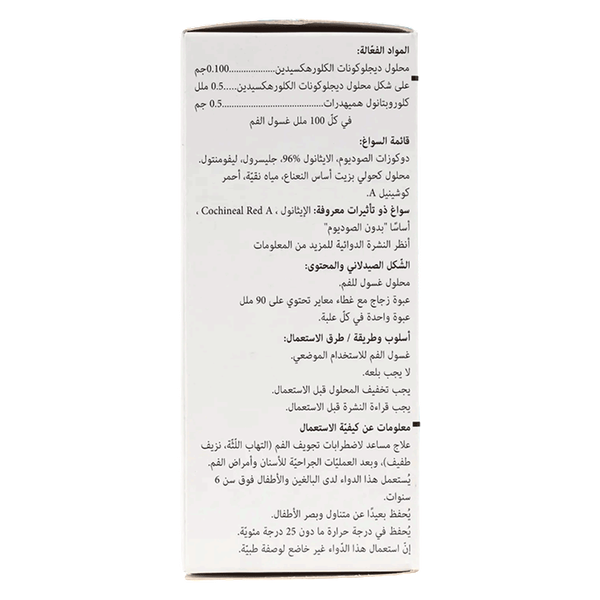 المواد الفعّالة:
محلول ديجلوكونات الكلورهكسيدين...................0.100جم
على شكل محلول ديجلوكونات الكلورهكسيدين.....0.5 ملل
كلوروبتانول هميهدرات..............................0.5 جم
في كلّ 100 ملل غسول الفم
قائمة السواغ:
دوكوزات الصوديوم، الايثانول 96%، جليسرول، ليفومنتول.
محلول كحولي بزيت أساس النعناع، مياه نقيّة، أحمر
كوشينيل A.
سواغ ذو تأثيرات معروفة: الإيثانول ، Cochineal Red A ،
أساسًا "بدون الصوديوم"
أنظر النشرة الدوائية للمزيد من المعلومات
الشّكل الصيدلاني والمحتوى:
محلول غسول للفم.
عبوة زجاج مع غطاء معاير تحتوي على 90 ملل
عبوة واحدة في كلّ علبة.
أسلوب وطريقة / طرق الاستعمال:
غسول الفم للاستخدام الموضعي.
لا يجب بلعه.
يجب تخفيف المحلول قبل الاستعمال.
يجب قراءة النشرة قبل الاستعمال.
معلومات عن كيفيّة الاستعمال
علاج مساعد لاضطرابات تجويف الفم (التهاب اللّثّة، نزيف
طفيف)، وبعد العمليّات الجراحيّة للأسنان وأمراض الفم.
يُستعمل هذا الدواء لدى البالغين والأطفال فوق سن 6
سنوات.
يُحفظ بعيدًا عن متناول وبصر الأطفال.
يُحفظ في درجة حرارة ما دون 25 درجة مئويّة.
إنّ استعمال هذا الدّواء غير خاضع لوصفة طبيّة.